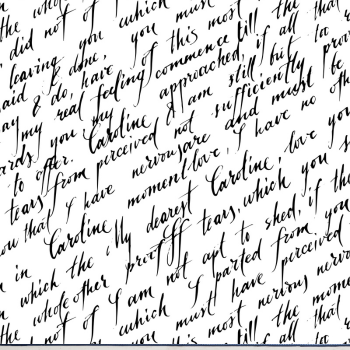 the who of which most the
did not you this till
leaving you commence if all
said & done, feeling approached but to prov
ay & do, have I am still, sufficiently be
my real not and must
you Caroline perceived are I have no oth
ards to offer. nervous love, love you
tears from moment Caroline,
you that I have dearest which you s
Caroline My tears, shed, if the
in the proof apt to from you
which other not I parted perceived
the whole I am must have nervous
not of which most nervous mome
the this till the